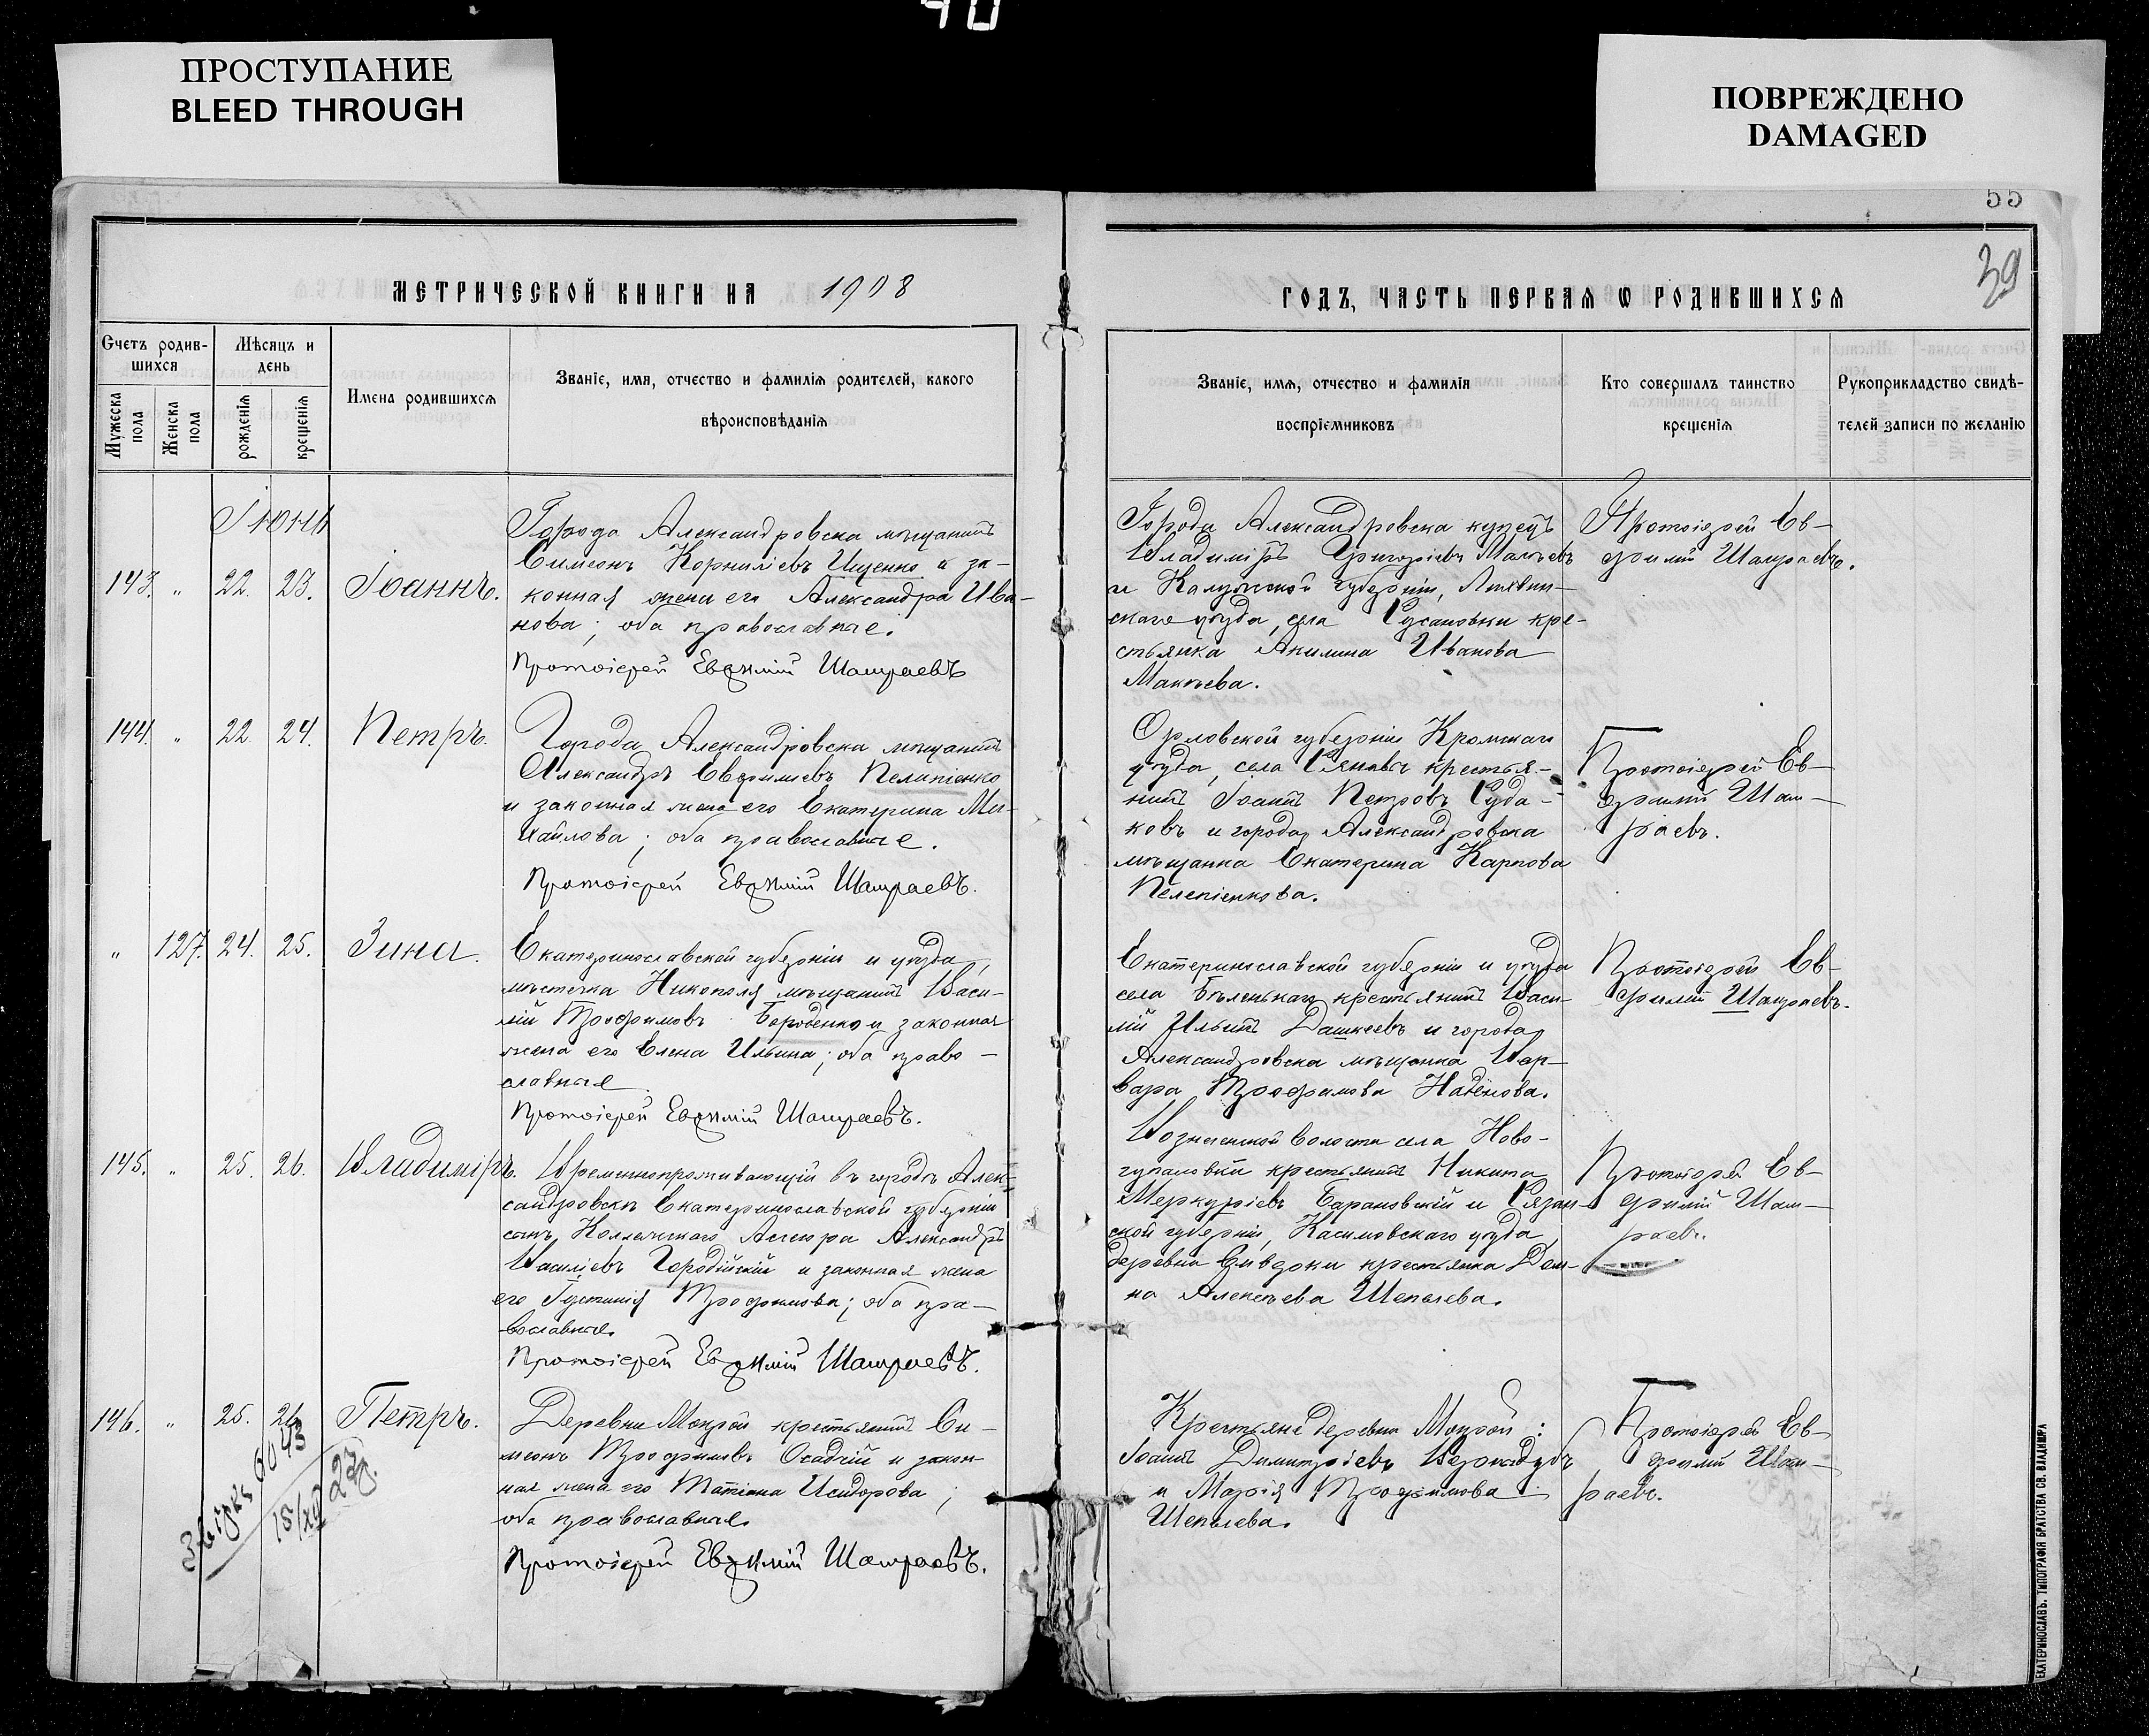 40
ПРОСТУПАНИЕ
BLEED THROUGH
ПОВРЕЖДЕНО
DAMAGED
55
39
МЕТРИЧЕСКОЙ КНИГИ НА 1908
ГОДЪ, ЧАСТЬ ПЕРВАЯ Ѡ РОДИВШИХСЯ
Счетъ родив-
шихся
Мужеска
пола
Женска
пола
Мѣсяцъ и
день
рожденія
крещенія
Имена родившихся
Званіе, имя, отчество и фамилія родителей, какого
вѣроисповѣданія
Званіе, имя, отчество и фамилія
воспріемниковъ
Кто совершалъ таинство
крещенія
Рукоприкладство свидѣ-
телей записи по желанію
Іюнь
143. " 22. 23. Іоаннъ.
Города Александровска мѣщанинъ
Симеонъ Корниліевъ Ищенко и за-
конная жена его Александра Ива-
нова; оба православные.
Протоіерей Евѳимій Шамраевъ
Города Александровска купецъ
Владиміръ Григоріевъ
и Калужской губерніи, Лихвин-
скаго уѣзда, села кре-
стьянка Акилина Иванова
Макѣева.
Протоіерей Ев-
фимій Шамраевъ.
144. " 22. 24. Петръ.
Города Александровска мѣщанинъ
Александръ Евфиміевъ Пелипенко
и законная жена его Екатерина Ми-
хайлова; оба православные.
Протоіерей Евѳимій Шамраевъ.
Орловской губерніи Кромскаго
уѣзда, села крестья-
нинъ Іоаннъ Петровъ Суда-
ковъ и города Александровска
мѣщанка Екатерина Карпова
Пелепенкова.
Протоіерей Ев-
фимій Шам-
раевъ.
" 127. 24. 25. Зина.
Екатеринославской губерніи и уѣзда,
мѣстечка Никополя мѣщанинъ Васи-
лій Трофимовъ Бороденко и законная
жена его Елена Ильина; оба право-
славные
Протоіерей Евѳимій Шамраевъ.
Екатеринославской губерніи и уѣзда
села Бѣленькаго крестьянинъ Васи-
лій Ильинъ Дашкеевъ и города
Александровска мѣщанка Вар-
вара Трофимова
Протоіерей Ев-
фимій Шамраевъ.
145. " 25. 26. Владиміръ.
Временнопроживающій въ городѣ Алек-
сандровскѣ Екатеринославской губерніи
сынъ Коллежскаго Асесора Александръ
Василіевъ Городійскій и законная жена
его Іустинія Трофимова; оба пра-
вославные.
Протоіерей Евѳимій Шамраевъ.
Вознесенской волости села Ново-
гупаловки крестьянинъ Никита
Меркуріевъ Барановскій и Рязан-
ской губерніи, Касимовскаго уѣзда,
деревни крестьянка Дом-
на Алексѣева Шепелева.
Протоіерей Ев-
фимій Шам-
раевъ.
146. " 25. 26. Петръ.
Деревни Мокрой крестьянинъ Си-
меонъ Трофимовъ Осадчій и закон-
ная жена его Татіана Исидорова;
оба православные.
Протоіерей Евѳимій Шамраевъ.
Крестьяне деревни Мокрой:
Іоаннъ Димитріевъ Вернидубъ
и Марія Трофимова
Шепелева.
Протоіерей Ев-
фимій Шам-
раевъ.
ЕКАТЕРИНОСЛАВЪ. ТИПОГРАФІЯ БРАТСТВА СВ. ВЛАДИМІРА